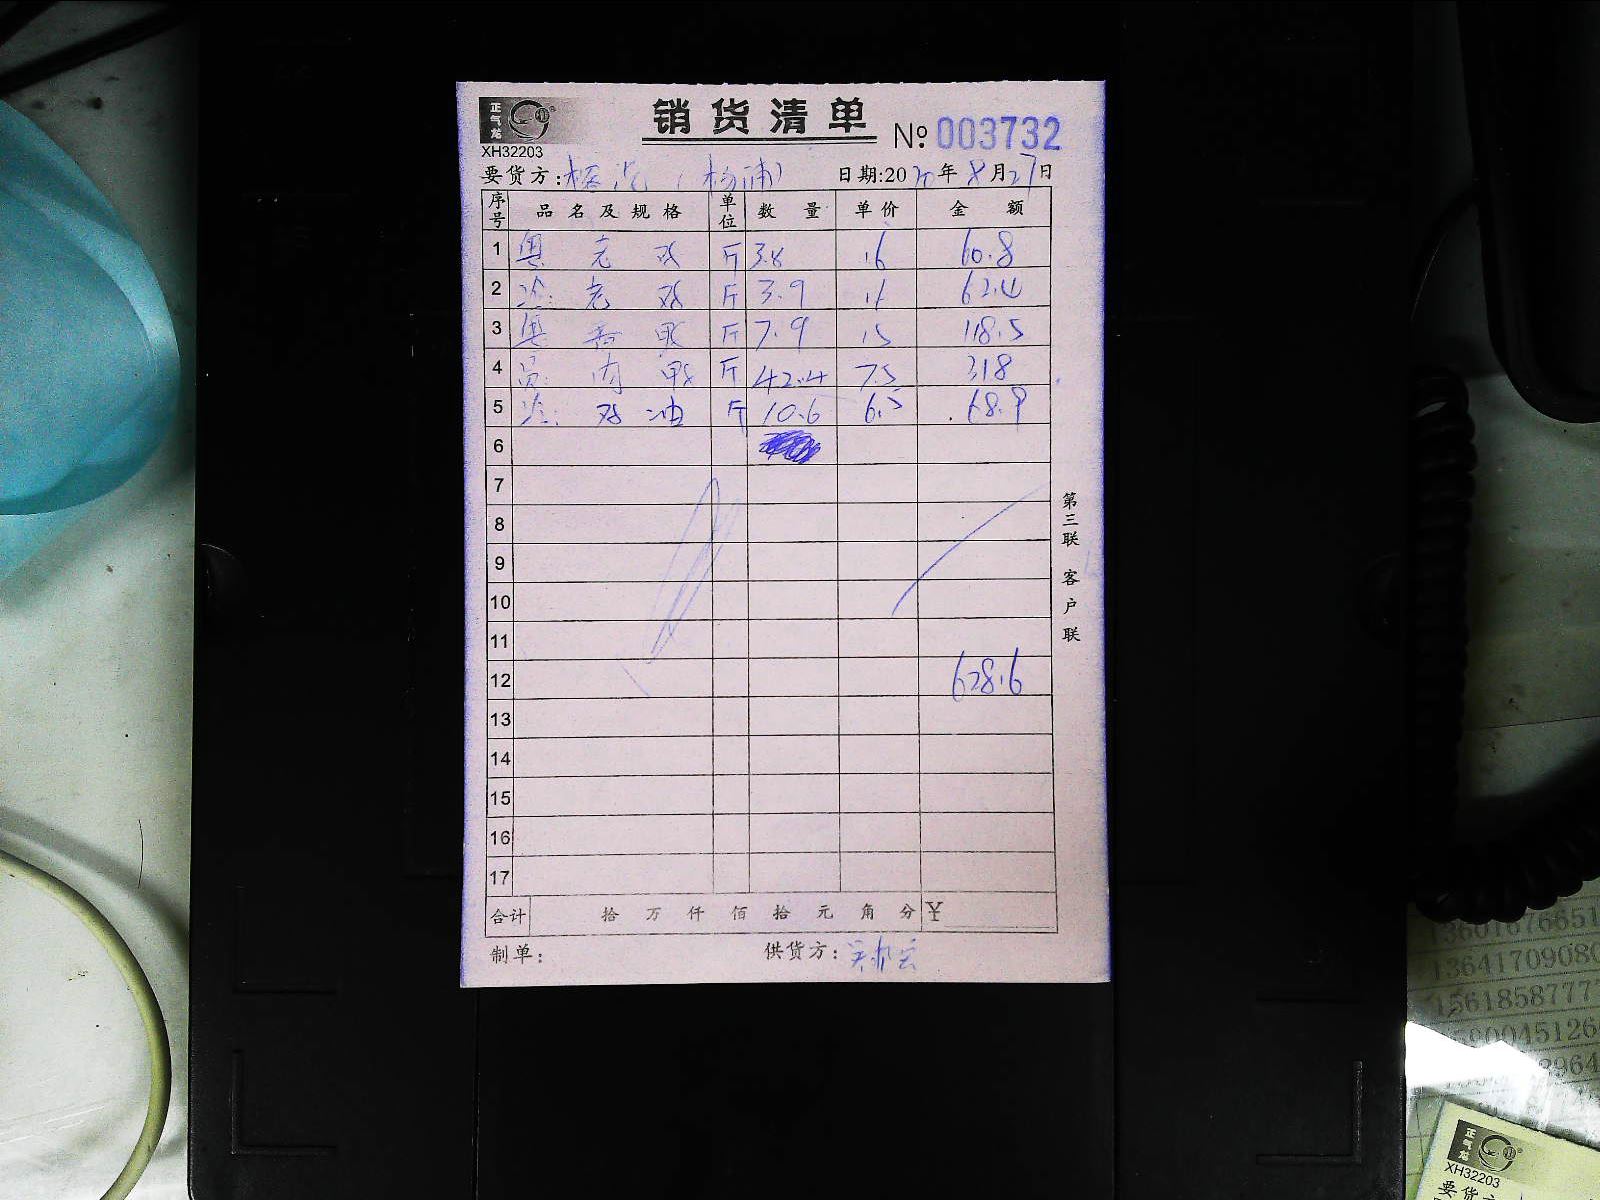 正气龙
XH32203
销货清单
№ 003732
要货方: (杨浦) 日期:20 年 8 月 27 日
序号 品名及规格 单位 数量 单价 金额
1 老鸡 斤 3.8 16 60.8
2 老鸡 斤 3.9 16 62.4
3 斤 7.9 15 118.5
4 肉鸭 斤 42.4 7.5 318
5 鸡油 斤 10.6 6.5 68.9
6
7
8
9
10
11
12 628.6
13
14
15
16
17
合计 拾 万 仟 佰 拾 元 角 分 ¥
制单: 供货方:
第三联 客户联
13641709080
正气龙
XH32203
要货